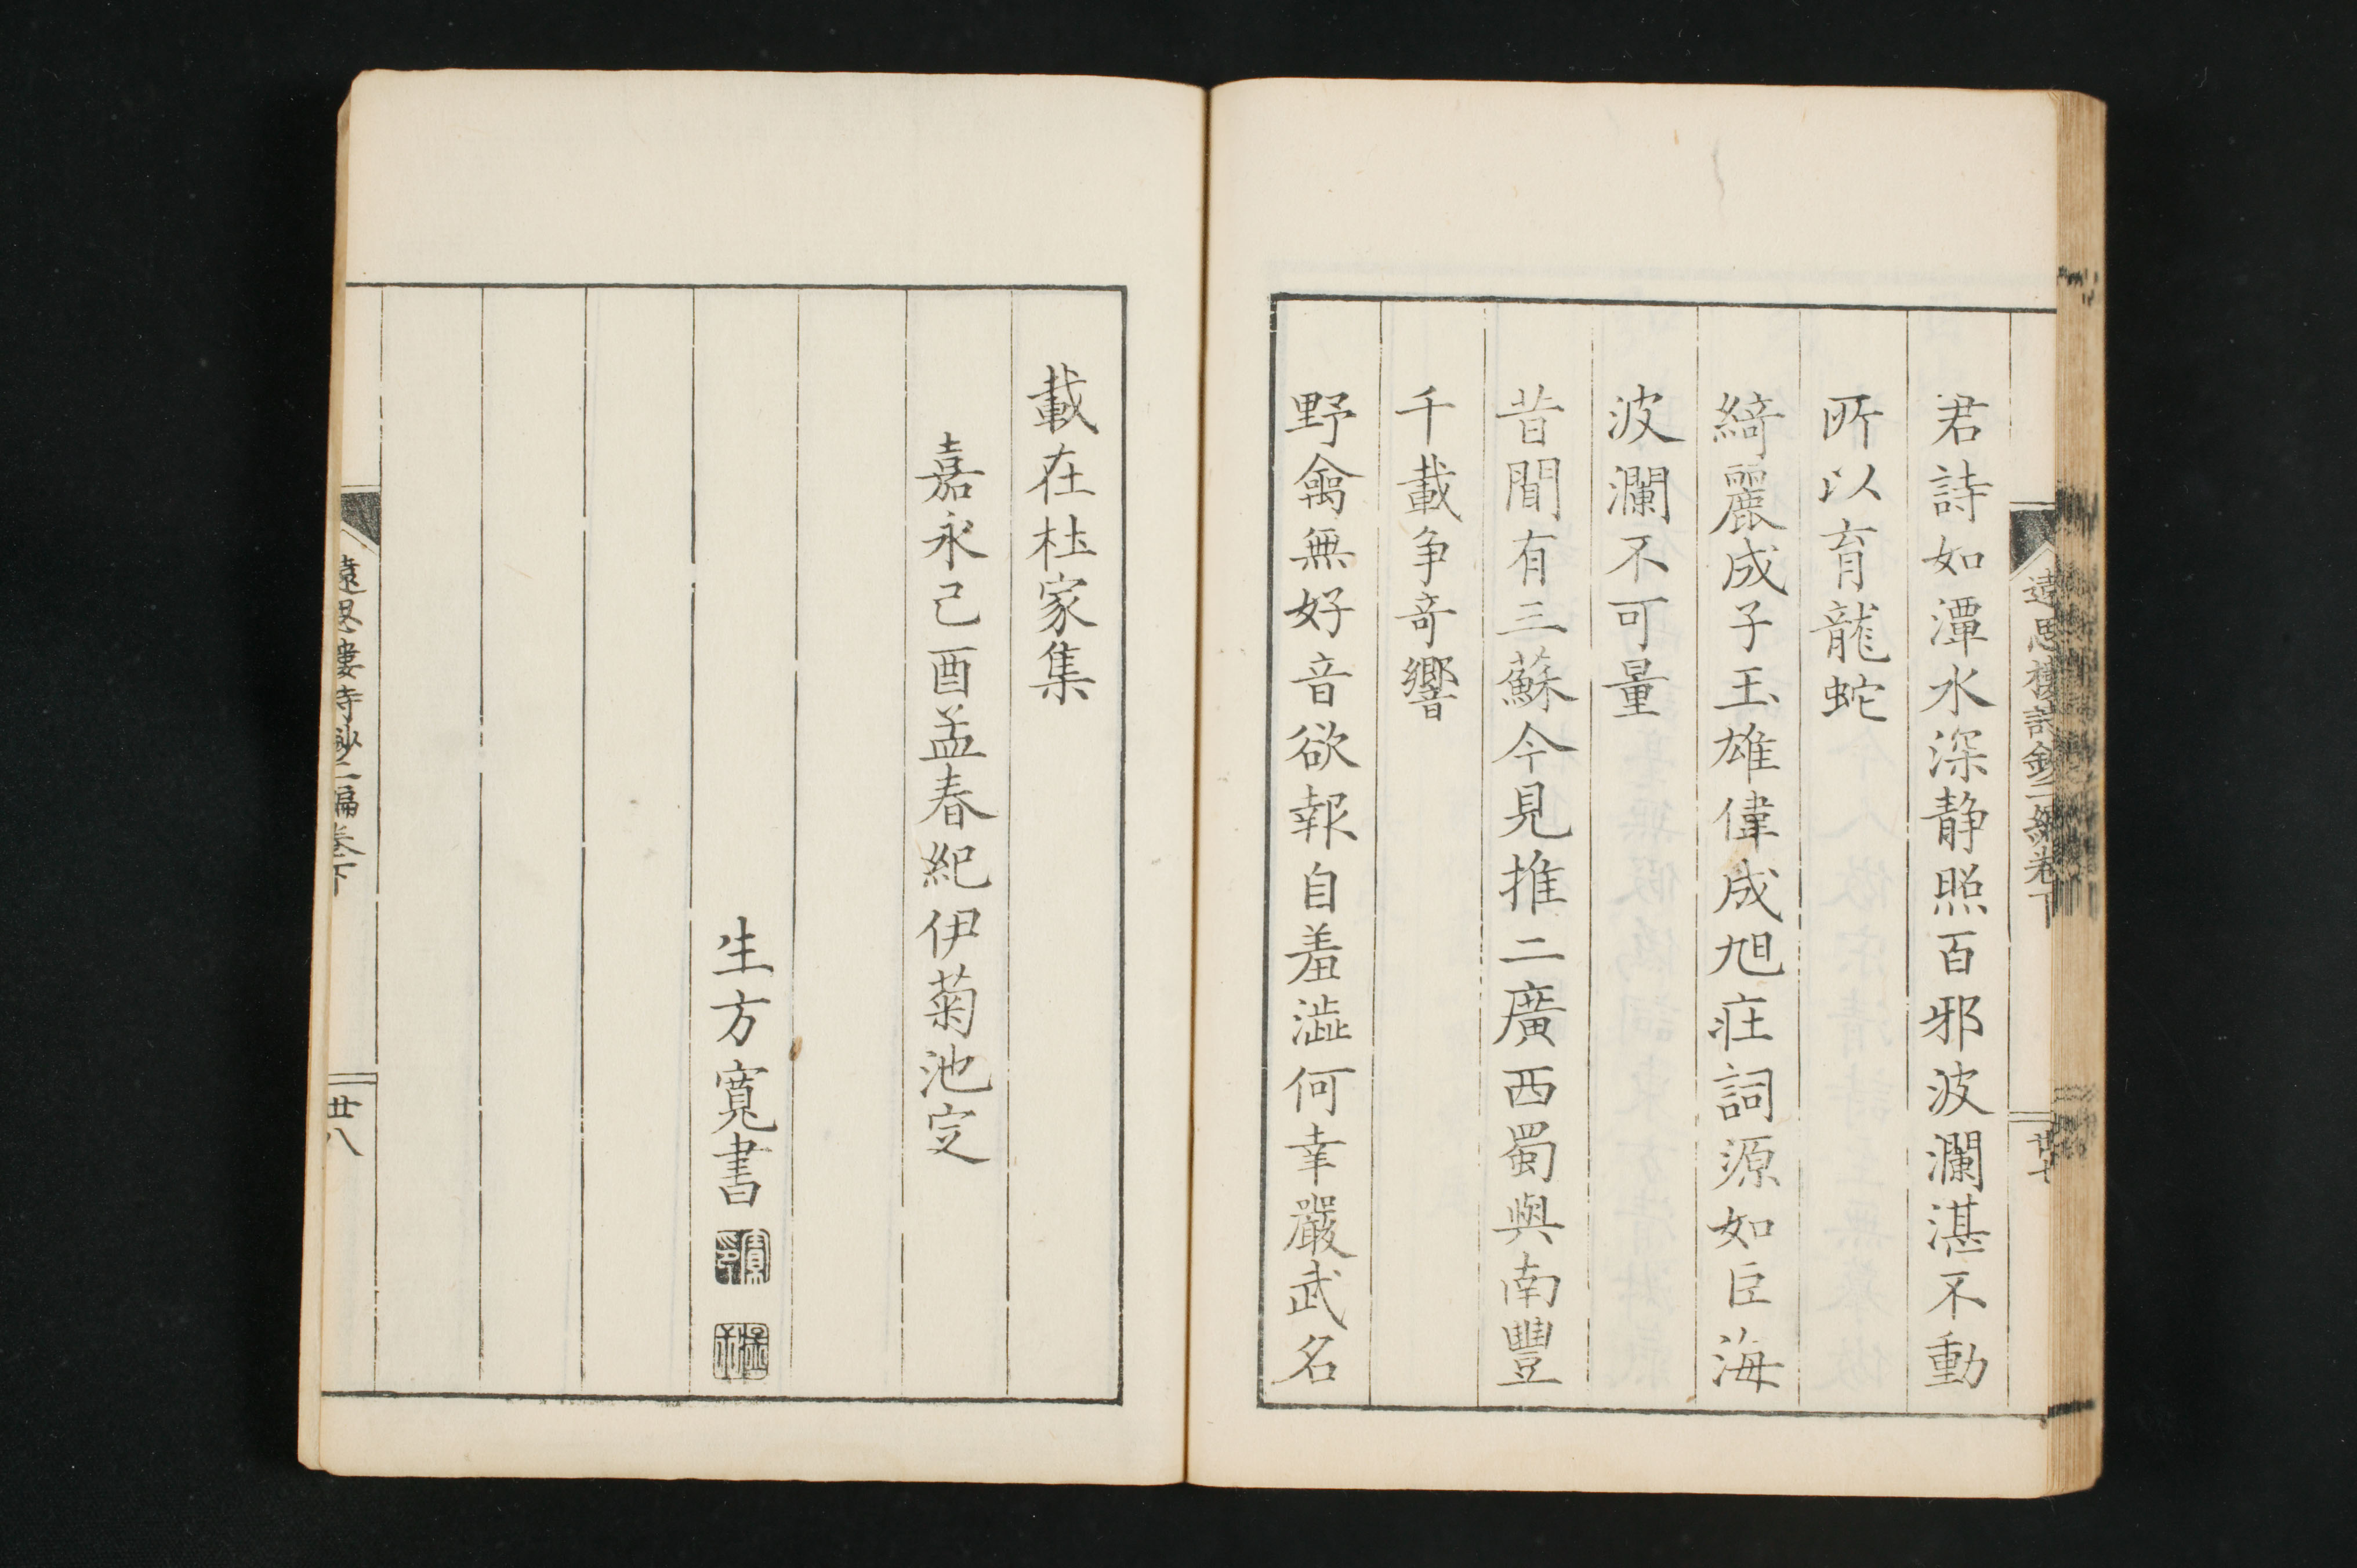 遠思樓詩鈔二編卷下
君詩如潭水深静照百邪波瀾湛不動
所以育龍蛇
綺麗成子玉雄偉成旭庄詞源如巨海
波瀾不可量
昔聞有三蘇今見推二廣西蜀與南豐
千載争奇響
野禽無好音欲報自羞澁何幸嚴武名
載在杜家集
嘉永己酉孟春紀伊菊池定
生方寛書
遠思樓詩鈔二編卷下
廿八